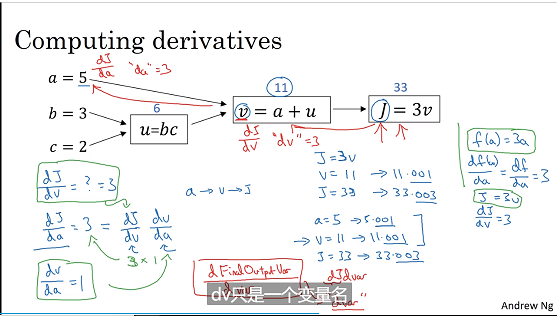 Computing derivatives
a = 5
dJ/da "da"=3
b = 3
c = 2
6
u=bc
11
v = a + u
dJ/dv "dv"=3
33
J = 3v
dJ/dv = ? = 3
dJ/da = 3 = dJ/dv dv/da
3 × 1
dv/da = 1
a → v → J
J = 3v
v = 11 → 11.001
J = 33 → 33.003
a = 5 → 5.001
→ v = 11 → 11.001
J = 33 → 33.003
f(a) = 3a
df(a)/da = df/da = 3
J = 3v
dJ/dv = 3
d FinalOutputVar
dJdvar
dv只是一个变量名
Andrew Ng